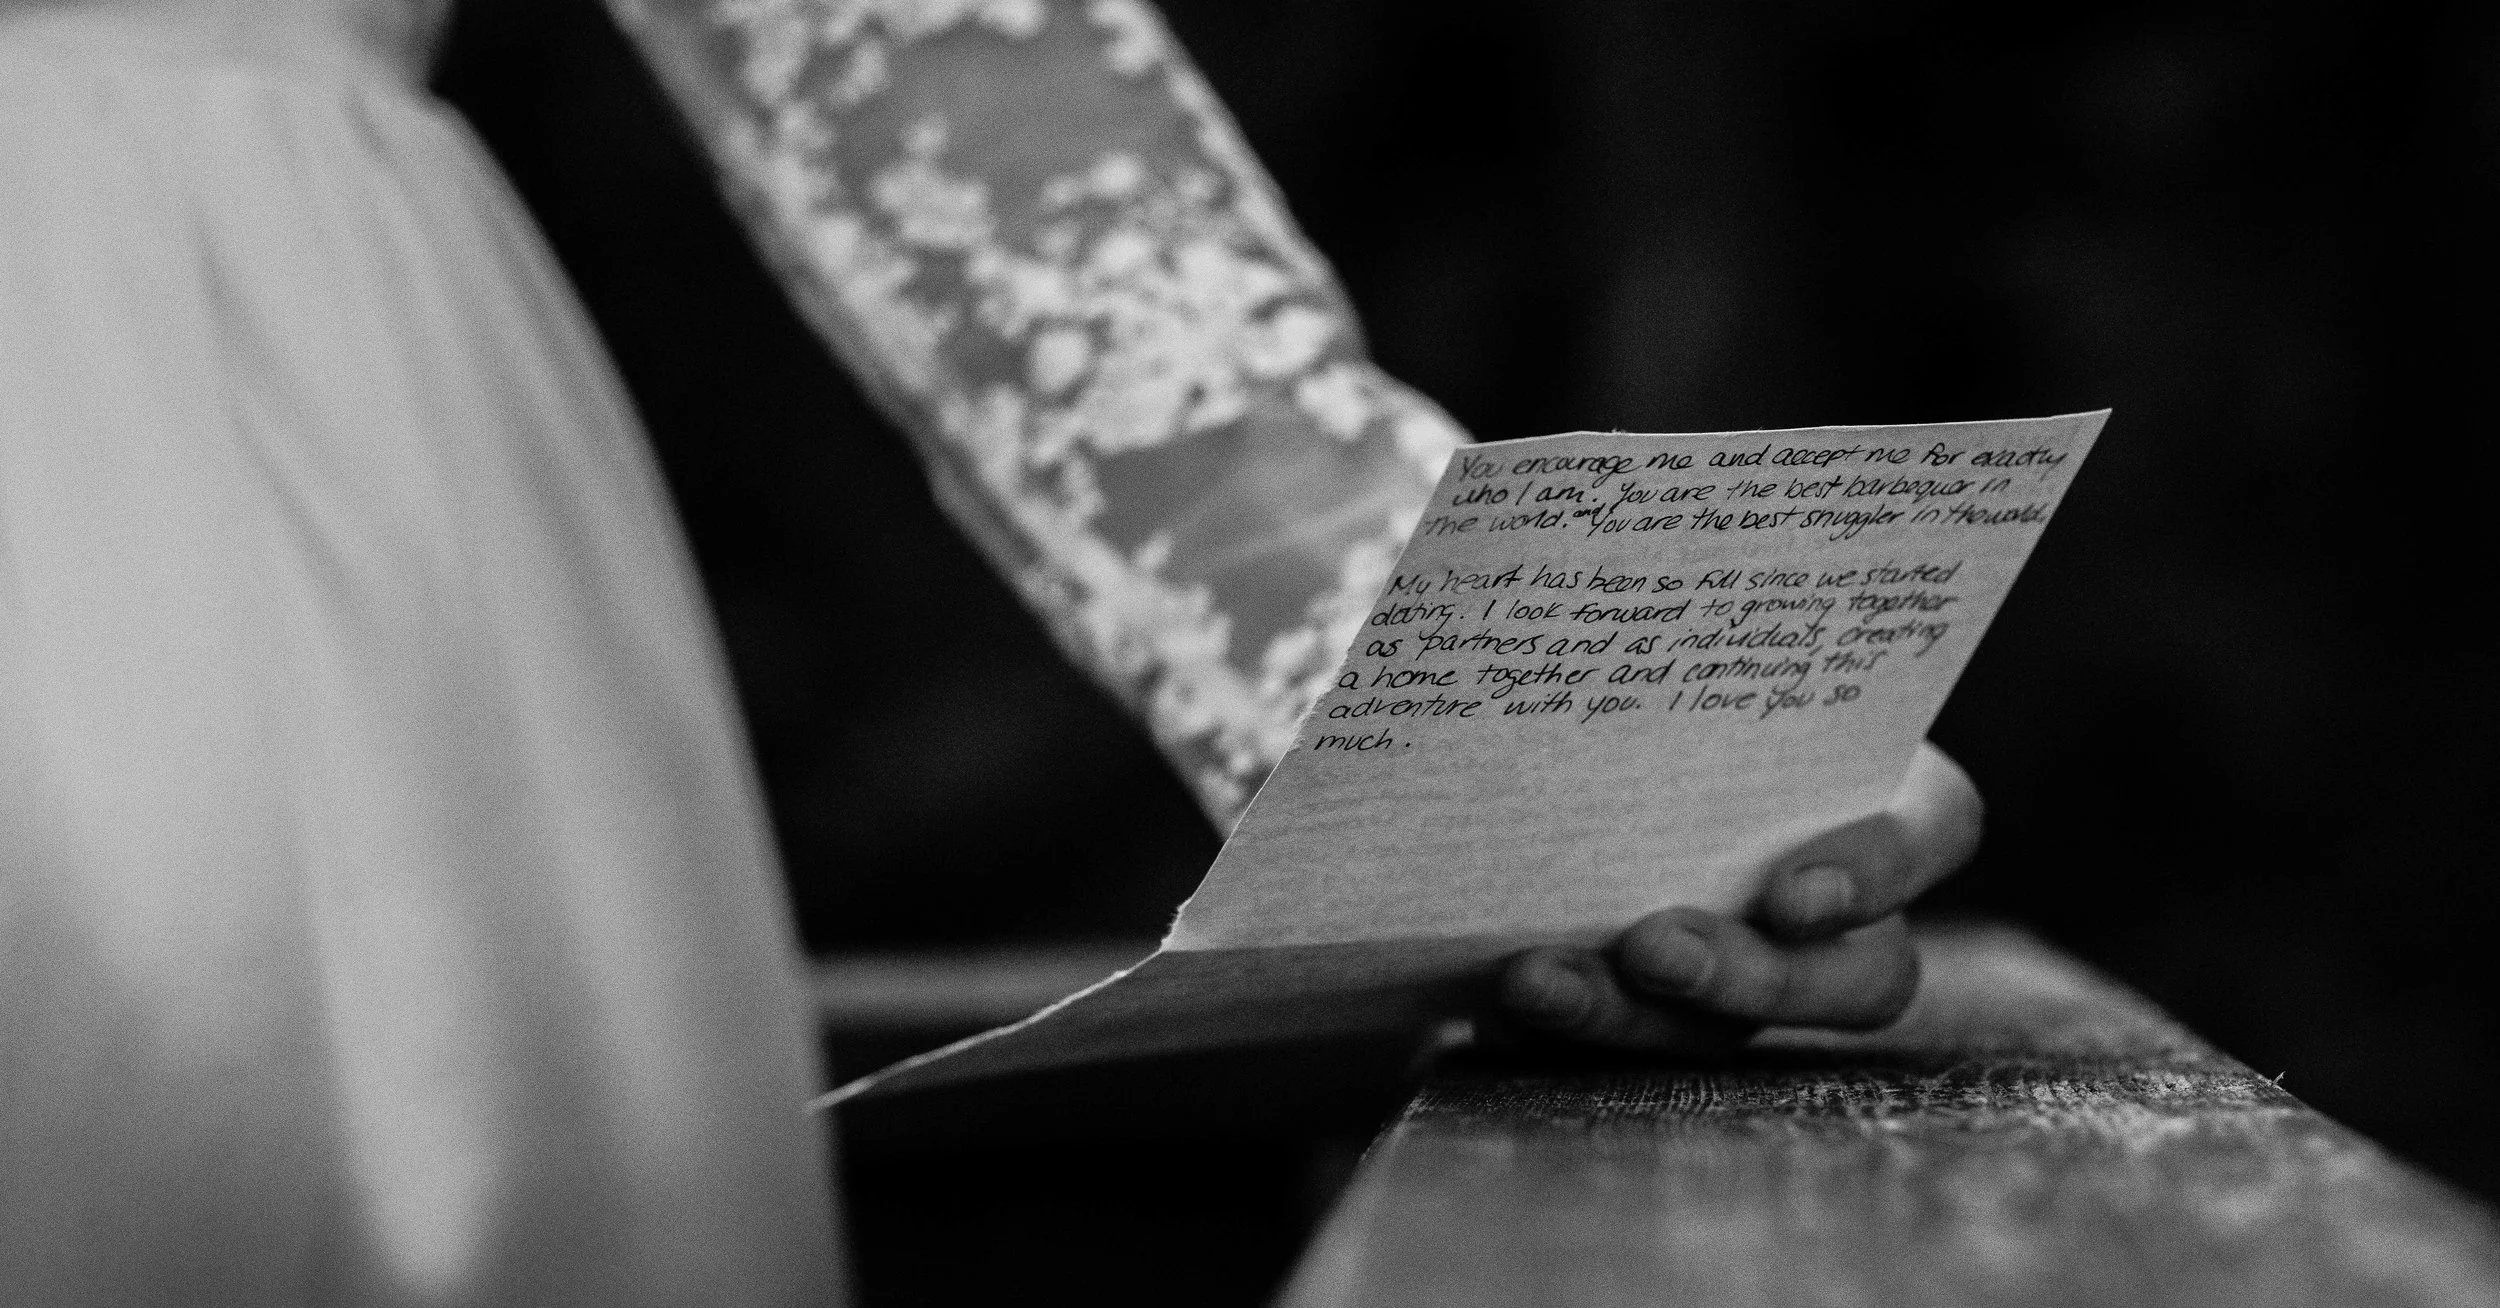 You encourage me and accept me for exactly
who I am. You are the best barbequer in
the world. and You are the best snuggler in the world.
My heart has been so full since we started
dating. I look forward to growing together
as partners and as individuals, creating
a home together and continuing this
adventure with you. I love you so
much.